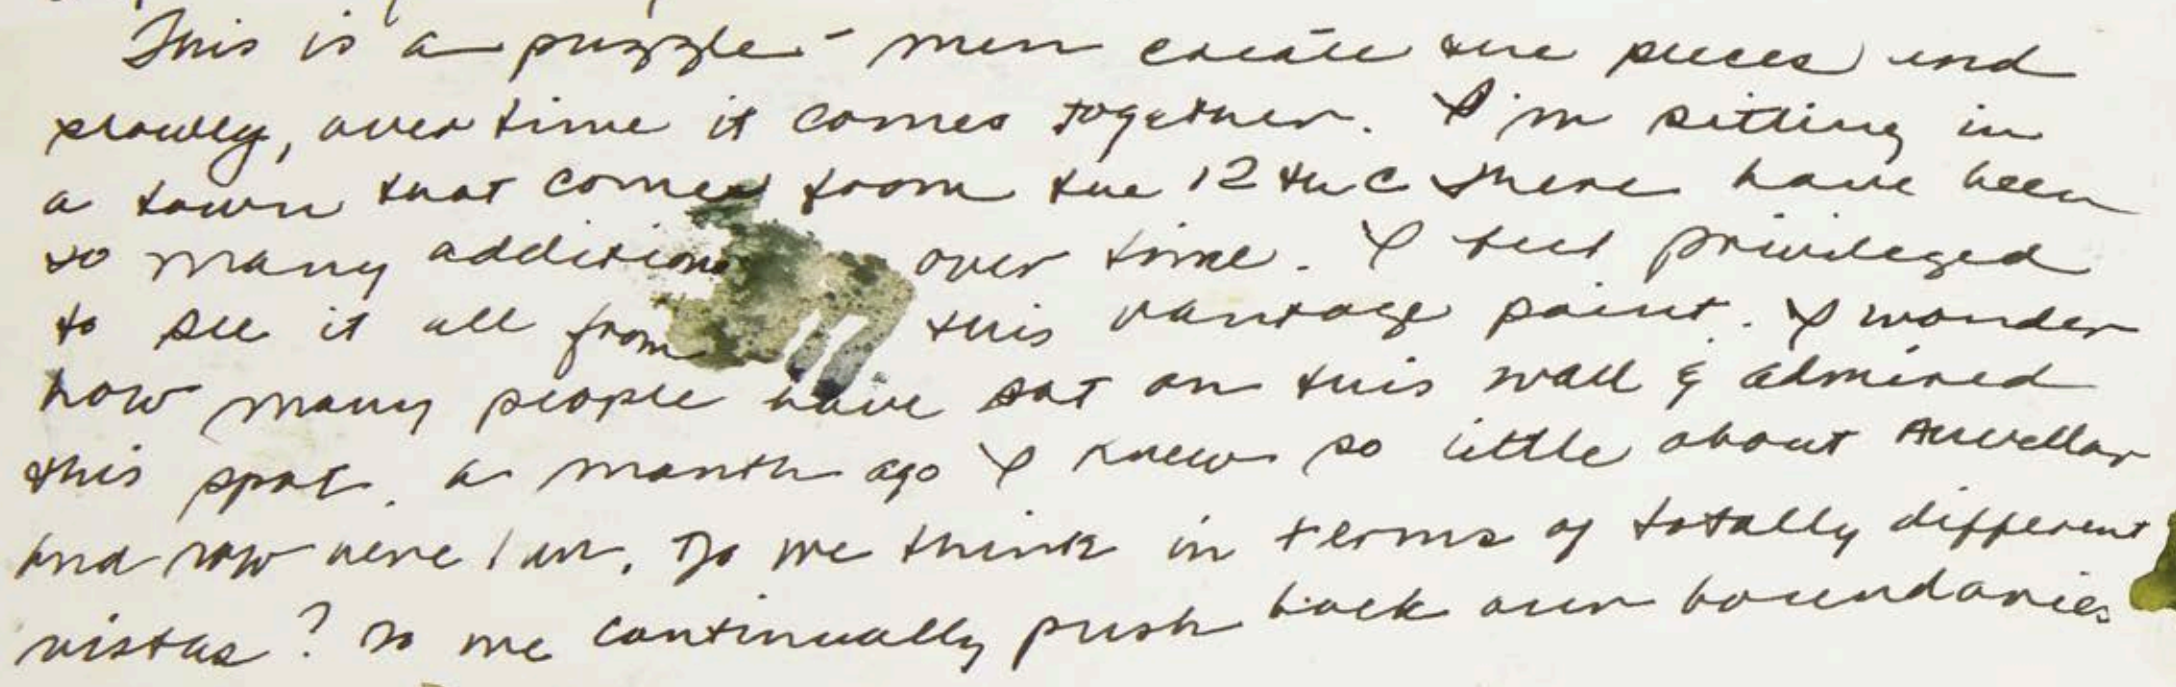 This is a puzzle - men create the pieces and
slowly, over time it comes together. I'm sitting in
a town that comes from the 12 th C There have been
so many additions over time. I feel privileged
to see it all from this vantage point. I wonder
how many people have sat on this wall & admired
this spot. a month ago I knew so little about Auvillar
and now here I am. Do we think in terms of totally different
vistas? Do we continually push back our boundaries